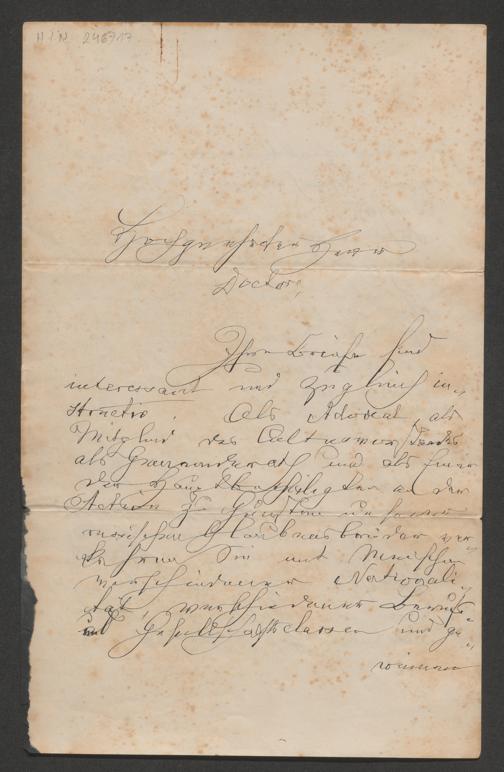 H.I.N. 246717
Hochgeehrter Herr
Doctor,
Ihre Briefe sind
interessant und zugleich in-
structiv. Als Advocat, als
Mitglied des Cultusvorstandes
als Gemeinderath und als einer
der Hauptbetheiligten an der
Action zu Gunsten unserer
russischen Glaubensbrüder ver-
kehren Sie mit Menschen
verschiedener Nationali-
tät, verschiedener Berufs-
und Gesellschaftsclassen und ge-
winnen